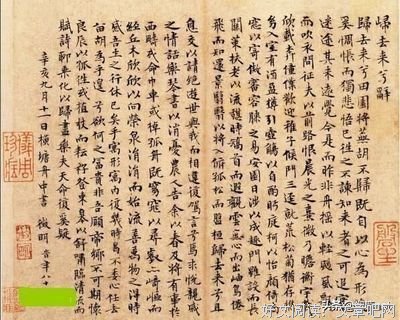 歸去来兮辭
歸去来兮田園將蕪胡不歸既自以心為形
奚惆悵而獨悲悟已往之不諫知来者之可追
迷途其未遠覺今是而昨非舟摇以輕颺風
而吹衣問征夫以前路恨晨光之熹微乃瞻衡宇
欣載奔僮僕歡迎稚子候門三逕就荒松菊猶存
幼入室有酒盈樽引壺觴以自酌眄庭柯以怡顔倚
窓以寄傲審容膝之易安園日涉以成趣門雖設而常
關策扶老以流憩時矯首而遐觀雲無心而出岫鳥倦
飛而知還景翳翳以將入撫孤松而盤桓歸去来兮
息交以絶遊世與我而相遺復駕言兮焉求悦親戚
之情話樂琴書以消憂農人告余以春及將有事於
西疇或命巾車或棹孤舟既窈窕以尋壑亦崎嶇而
經丘木欣欣以向榮泉涓涓而始流善萬物之得時
感吾生之行休已矣乎寓形宇内復幾時曷不委心任去
留胡為乎遑遑欲何之富貴非吾願帝鄉不可期懷
良辰以孤往或植杖而耘耔登東皋以舒嘯臨清流而
賦詩聊乘化以歸盡樂夫天命復奚疑
辛亥九月十一日橫塘舟中書 徵明